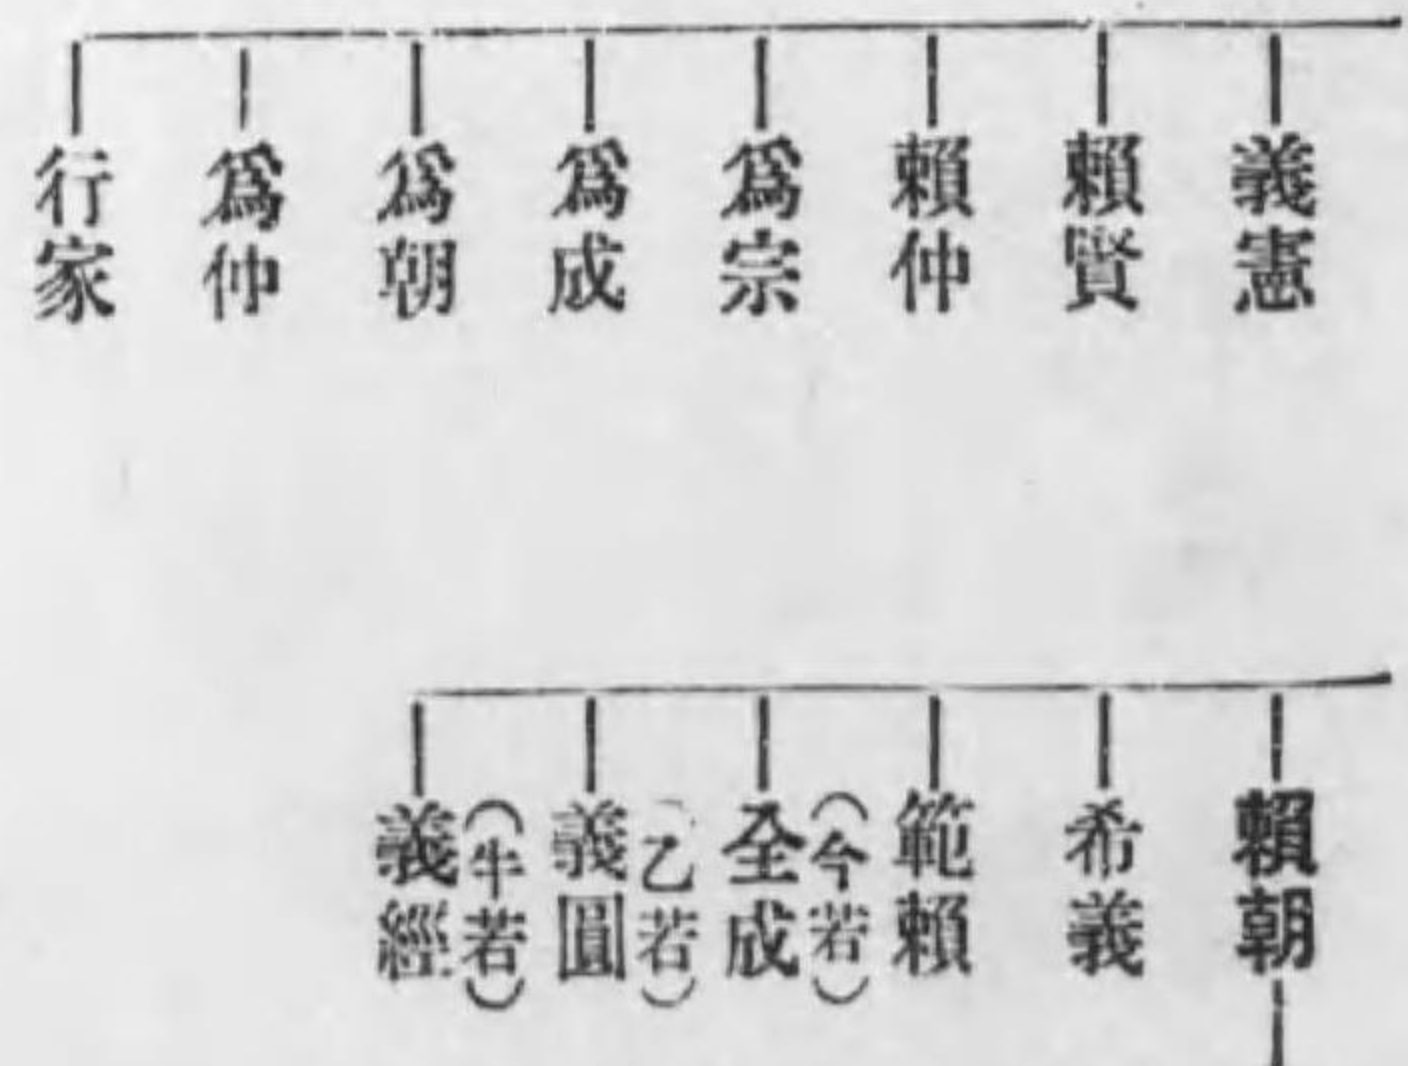 義憲
賴賢
賴仲
爲宗
爲成
爲朝
爲仲
行家
賴朝
希義
範賴
(今若)
全成
(乙若)
義圓
(牛若)
義經